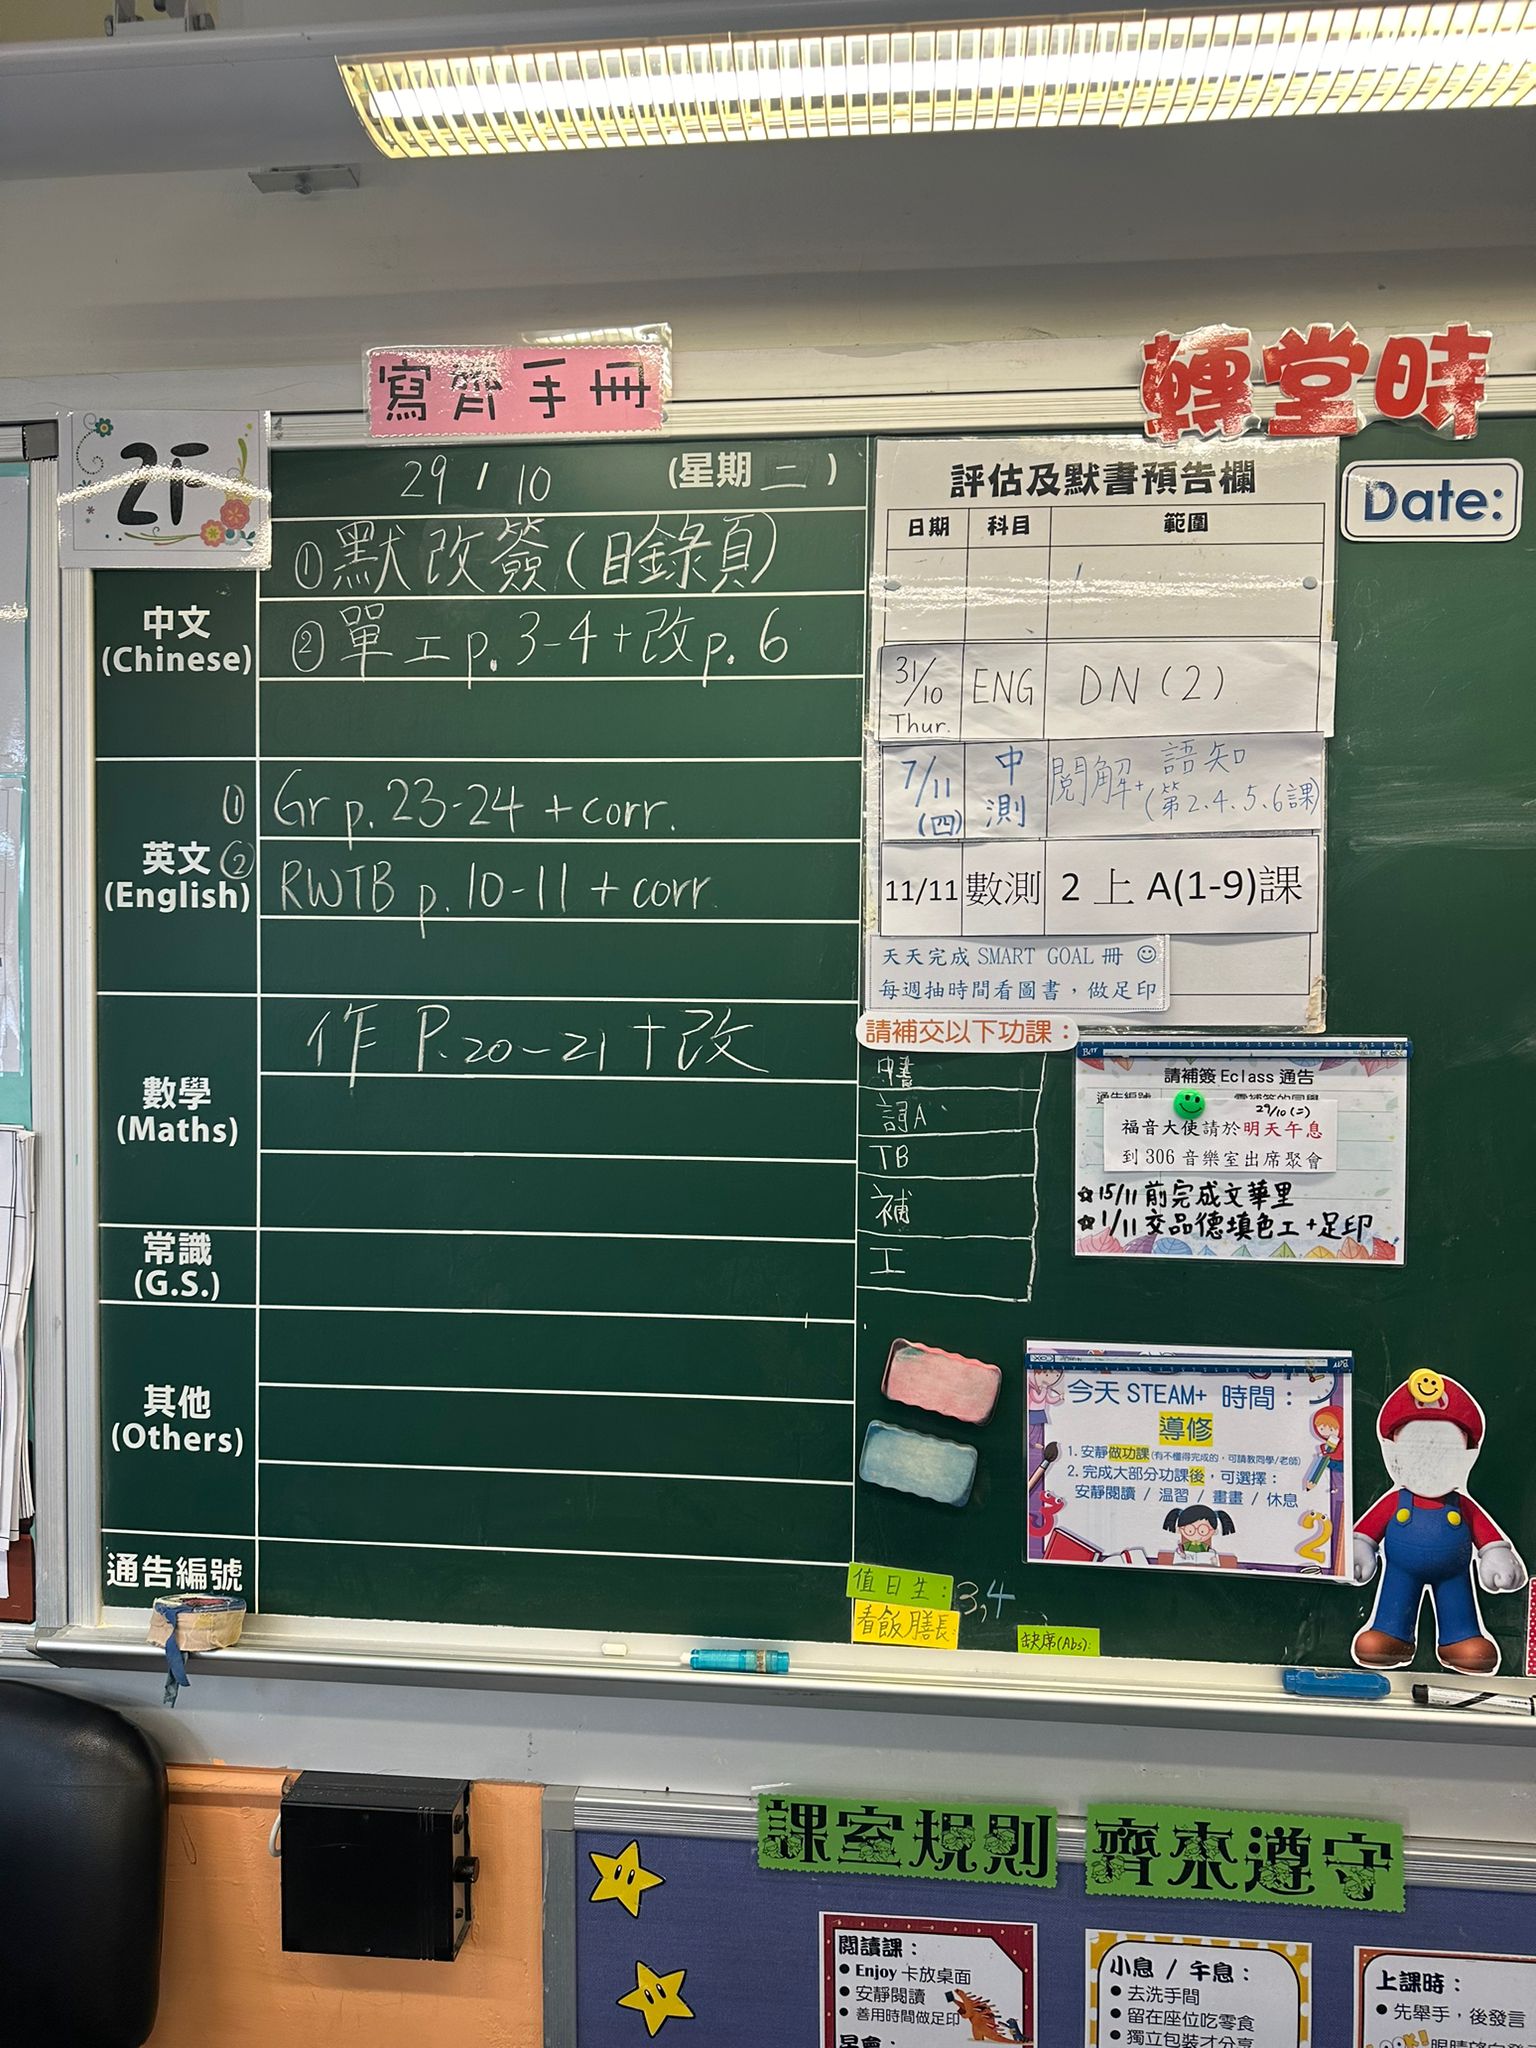 寫齊手冊
轉堂時
2F
29 / 10 (星期 二 )
中文
(Chinese)
①默改簽(目錄頁)
②單工p.3-4+改p.6
英文
(English)
① Gr p. 23-24 + corr.
② RWTB p. 10-11 + corr.
數學
(Maths)
作 P.20-21+改
常識
(G.S.)
其他
(Others)
通告編號
評估及默書預告欄
日期 科目 範圍
31/10 Thur. ENG DN (2)
7/11 (四) 中測 閱解+ 語知 (第2.4.5.6課)
11/11 數測 2 上 A(1-9)課
天天完成 SMART GOAL 冊 ☺
每週抽時間看圖書，做足印
Date:
請補交以下功課：
中書
詞A
TB
補
工
請補簽 Eclass 通告
通告編號
29/10 (二)
福音大使請於明天午息
到 306 音樂室出席聚會
☆15/11 前完成文華里
☆1/11 交品德填色工+足印
今天 STEAM+ 時間：
導修
1. 安靜做功課(有不懂得完成的，可請教同學/老師)
2. 完成大部分功課後，可選擇：
安靜閱讀 / 溫習 / 畫畫 / 休息
2
值日生： 3,4
看飯膳長:
缺席(Abs):
課室規則 齊來遵守
閱讀課：
● Enjoy 卡放桌面
● 安靜閱讀
● 善用時間做足印
早會：
小息 / 午息：
● 去洗手間
● 留在座位吃零食
● 獨立包裝才分享
上課時：
● 先舉手，後發言